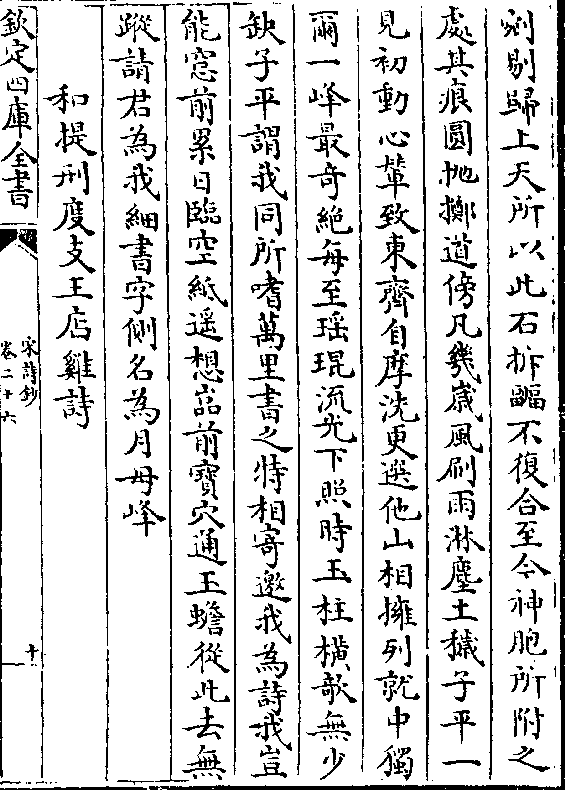 剜剔歸上天所以此石拆副不復合至今神胞所附之
處其痕圓抛擲道傍凡幾歲風刷雨淋塵土穢子平一
見初動心輦致東齋自摩洗更選他山相擁列就中獨
爾一峰最奇絶每至瑶琨流光下照時玉柱橫欹無少
缺子平謂我同所嗜萬里書之特相寄邀我為詩我豈
能窓前累日臨空紙遥想嵓前寶穴通玉蟾從此去無
蹤請君為我細書字側名為月母峰
和提刑度支王店雞詩
欽定四庫全書
宋詩鈔
卷二十六
十